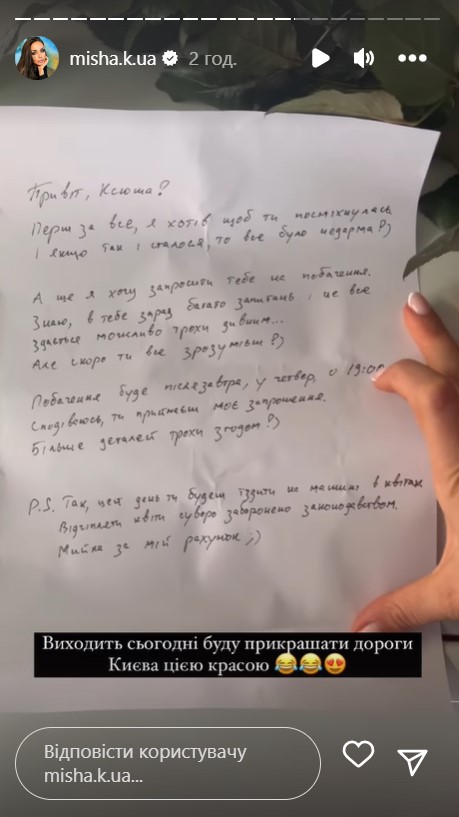 misha.k.ua 2 год.
Привіт, Ксюша?
Перш за все, я хотів щоб ти посміхнулась
і якщо так і сталося, то все було недарма?)
А ще я хочу запросити тебе на побачення.
Знаю, в тебе зараз багато запитань і це все
здається можливо трохи дивним...
Але скоро ти все зрозумієш?)
Побачення буде післязавтра, у четвер, о 19:00
Сподіваюсь, ти приймеш моє запрошення.
Більше деталей трохи згодом?)
P.S. Так, цей день ти будеш їздити на машині в квітах
Відчіпляти квіти суворо заборонено законодавством.
Мийка за мій рахунок ;)
Виходить сьогодні буду прикрашати дороги
Києва цією красою 😂😂😍
Відповісти користувачу
misha.k.ua...